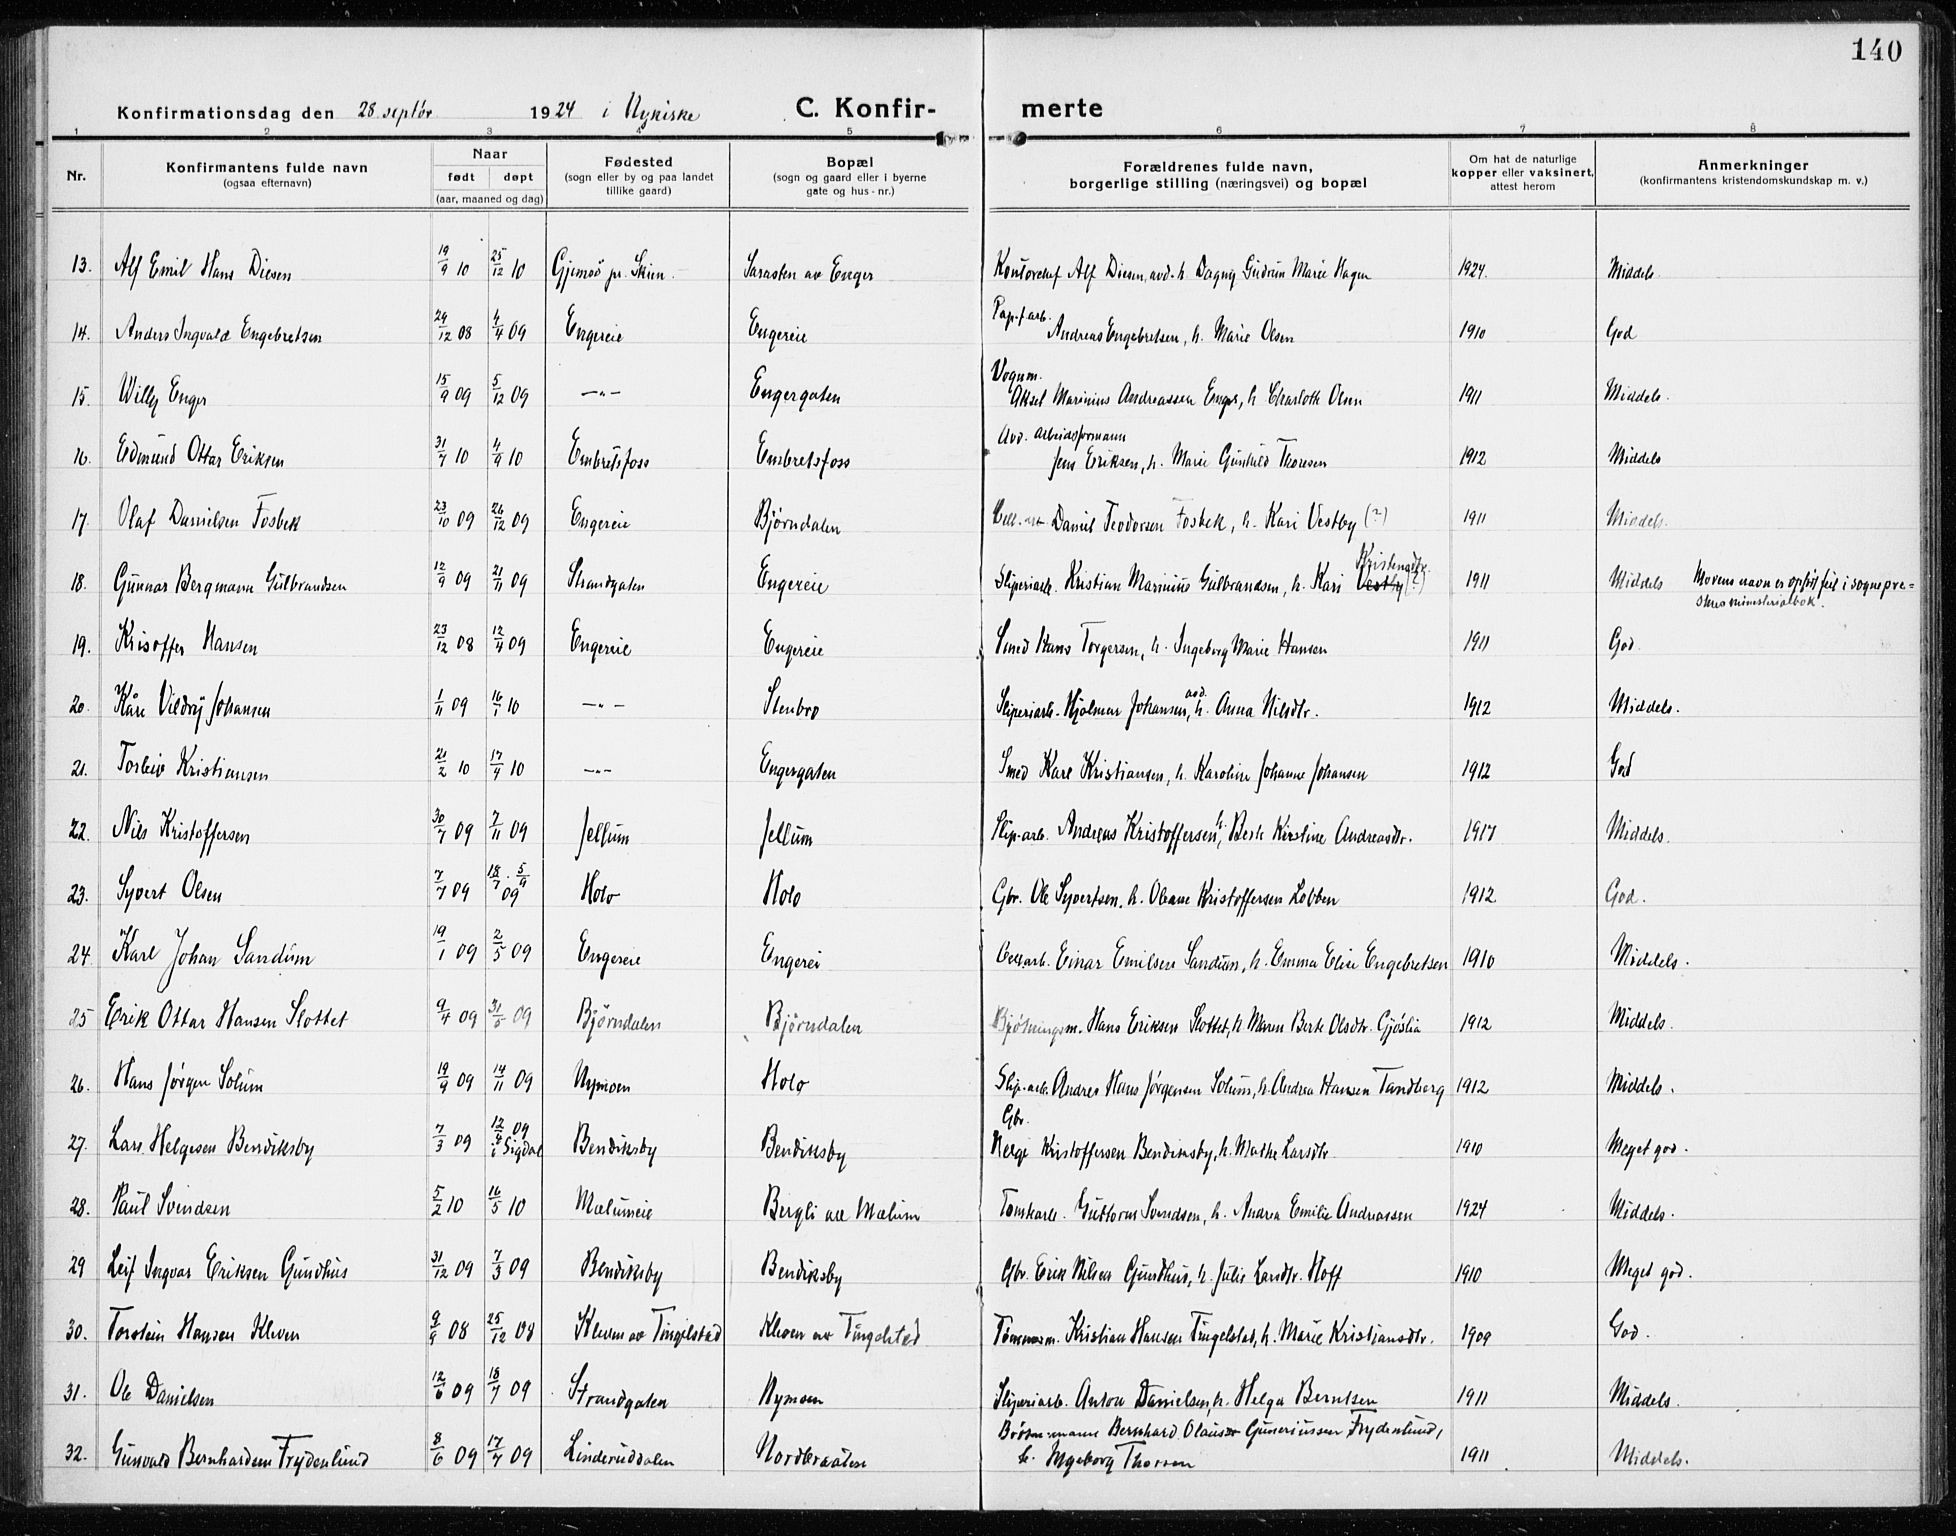 140
Konfirmationsdag den 28. septbr. 1924 i Nykirke C. Konfir- merte
1 2 3 4 5 6 7 8
Nr. Konfirmantens fulde navn (ogsaa efternavn) Naar født døpt (aar, maaned og dag) Fødested (sogn eller by og paa landet tillike gaard) Bopæl (sogn og gaard eller i byerne gate og hus-nr.) Forældrenes fulde navn, borgerlige stilling (næringsvei) og bopæl Om hat de naturlige kopper eller vaksinert, attest herom Anmerkninger (konfirmantens kristendomskundskap m. v.)
13. Alf Emil Hans Diesen 19/9 10 25/12 10 Gjemsø pr. Skien Sarasten av Enger Kontorchef Alf Diesen, avd. h. Dagny Gudrun Marie Hagen 1924. Middels.
14. Anders Ingvald Engebretsen 29/12 08 4/4 09 Engereie Engereie Pap.f.arb. Andreas Engebretsen, h. Marie Olsen 1910 God
15. Willy Enger 15/9 09 5/12 09 —"— Engergaten Vognm. Aksel Marinius Andreassen Enger, h. Charlotte Olsen 1911 Middels.
16. Edmund Ottar Eriksen 31/7 10 4/9 10 Embretsfoss Embretsfoss Avd. arbeidsformann Jens Eriksen, h. Marie Gunhild Thoresen 1912 Middels
17. Olaf Danielsen Fosbek 23/10 09 26/12 09 Engereie Bjørndalen Cell.arb. Daniel Teodorsen Fosbek, h. Kari Vestby (?) 1911 Middels.
18. Gunnar Bergmann Gulbrandsen 12/9 09 21/11 09 Strandgaten Engereie Sliperiarb. Kristian Marinius Gulbrandsen, h. Kari Vestby (?) Kristensdtr. 1911 Middels Morens navn er opført feil i sogneprestens ministerialbok.
19. Krisoffer Hansen 23/12 08 12/4 09 Engereie Engereie Smed Hans Torgersen, h. Ingeborg Marie Hansen 1911 God.
20. Kåre Vildry Johansen 1/11 09 16/1 10 —"— Stenbro Sliperiarb. Hjalmar Johansen, avd. h. Anna Nilsdtr. 1912 Middels.
21. Torleiv Kristiansen 21/2 10 17/4 10 —"— Engergaten Smed Karl Kristiansen, h. Karoline Johanne Johansen 1912 God
22. Nils Kristoffersen 30/7 09 7/11 09 Jellum Jellum Slip.arb. Andreas Kristoffersen, h. Berte Kirstine Andreasdtr. 1917 Middels.
23. Syvert Olsen 7/7 09 18/7 . 5/9 09 Holo Holo Gbr. Ole Syvertsen, h. Oleane Kristoffersen Lobben 1912 God.
24. Karl Johan Sandum 19/1 09 2/5 09 Engereie Engerei Cell.arb. Einar Emilsen Sandum, h. Emma Elise Engebretsen 1910 Middels.
25 Erik Ottar Hansen Slottet 9/4 09 31/5 09 Bjørndalen Bjørndalen Bjøtningsm. Hans Eriksen Slottet, h. Maren Berte Olsdtr. Gjøslia 1912 Middels.
26. Hans Jørgen Solum 19/9 09 14/11 09 Nymoen Holo Slip.arb. Andres Hans Jørgensen Solum, h. Andrea Hansen Tandberg 1912 Middels.
27. Lars Helgesen Bendiksby 7/3 09 12/4 09 i Sigdal Bendiksby Bendiksby Gbr. Helge Kristoffersen Bendiksby, h. Mathe Larsdtr. 1910 Meget god.
28. Paul Svendsen 5/2 10 16/5 10 Mælumeie Bergli av Mælum Tomtearb. Guttorm Svendsen, h. Andrea Emilie Andreassen 1924 Middels.
29 Leif Ingvar Eriksen Gundhus 31/12 09 7/3 09 Bendiksby Bendiksby Gbr. Erik Nilsen Gundhus, h. Julie Larsdtr. Hoff 1910 Meget god.
30. Torstein Hansen Kleven 9/9 08 25/12 08 Kleven av Tingelstad Kleven av Tingelstad Tømmerm. Kristian Hansen Tingelstad, h. Marie Kristiansdtr. 1909 God.
31. Ole Danielsen 12/6 09 18/7 09 Strandgaten Nymoen Sliperiarb. Anton Danielsen, h. Helga Berntsen 1911 Middels.
32. Gunvald Bernhardsen Frydenlund 8/6 09 17/7 09 Linderuddalen Nordbraaten Bernhard Olausen Guneriussen Frydenlund, h. Ingeborg Thorsen 1911 Middels.